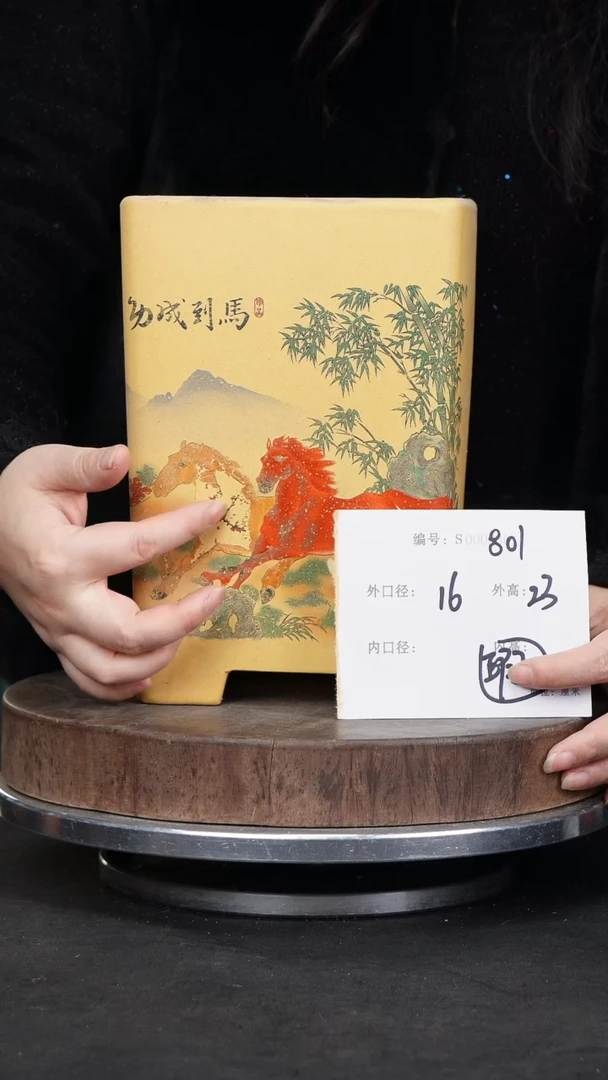 馬到成功
编号：S000801
外口径：16 外高：23
内口径：